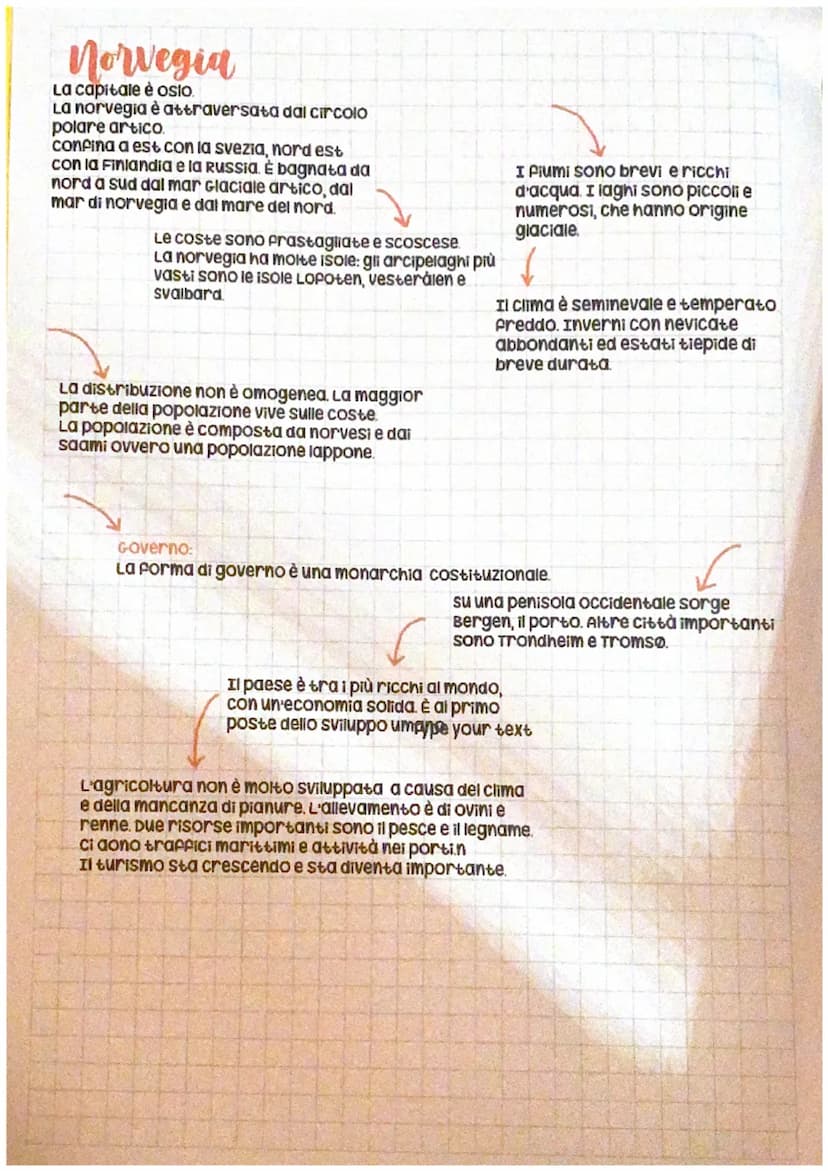 Norvegia
La capitale è oslo.
La norvegia è attraversata dal circolo
polare artico.
confina a est con la svezia, nord est
con la Finlandia e la Russia. È bagnata da
nord a sud dal mar Glaciale artico, dal
mar di norvegia e dal mare del nord.
Le coste sono frastagliate e scoscese.
La norvegia ha molte isole: gli arcipelaghi più
vasti sono le isole Lofoten, vesterålen e
svalbard.
I fiumi sono brevi e ricchi
d'acqua. I laghi sono piccoli e
numerosi, che hanno origine
glaciale.
Il clima è seminevale e temperato
freddo. Inverni con nevicate
abbondanti ed estati tiepide di
breve durata.
La distribuzione non è omogenea. La maggior
parte della popolazione vive sulle coste.
La popolazione è composta da norvesi e dai
saami ovvero una popolazione lappone.
Governo:
La forma di governo è una monarchia costituzionale.
su una penisola occidentale sorge
Bergen, il porto. Altre città importanti
sono Trondheim e Tromsø.
Il paese è tra i più ricchi al mondo,
con un'economia solida. È al primo
poste dello sviluppo your text
L'agricoltura non è molto sviluppata a causa del clima
e della mancanza di pianure. L'allevamento è di ovini e
renne. Due risorse importanti sono il pesce e il legname.
ci aono traffici marittimi e attività nei porti.n
Il turismo sta crescendo e sta diventa importante.